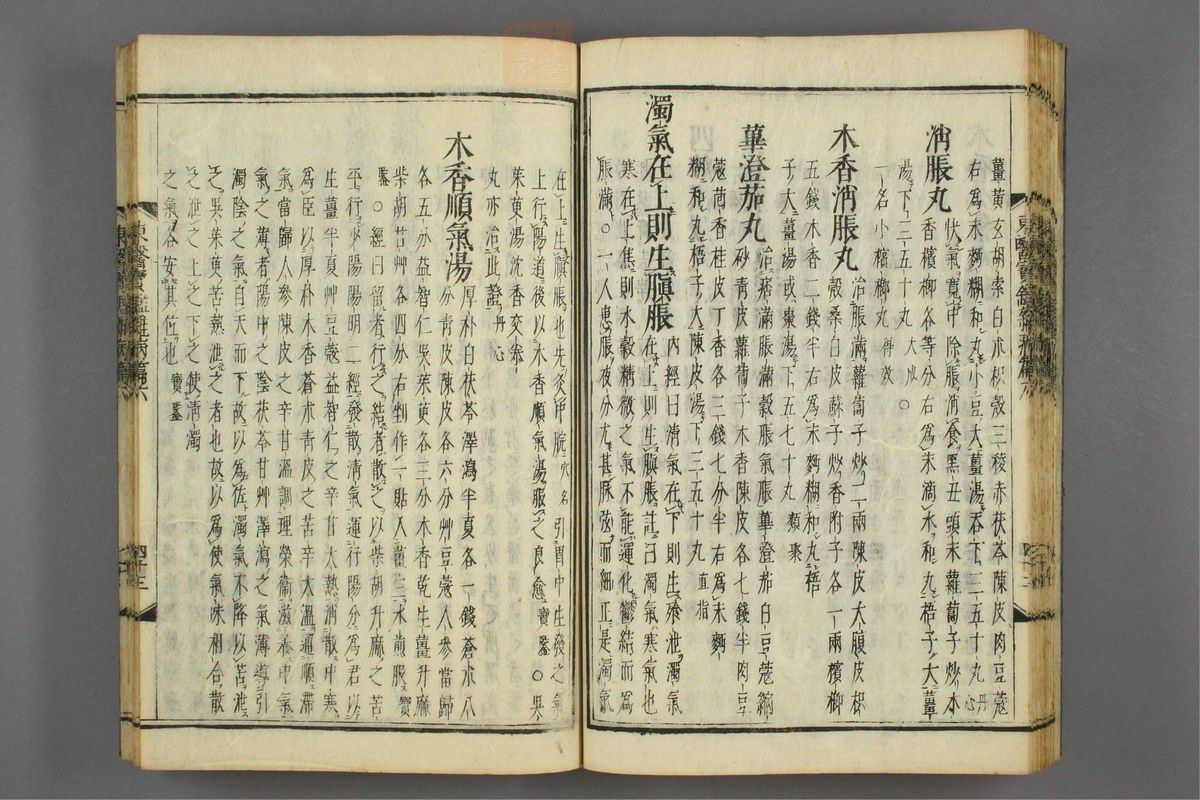 薑黃玄胡索白朮枳殼三稜赤茯苓陳皮肉豆蔻
右爲末麪糊和丸小豆大薑湯吞下三五十丸丹心
消脹丸 快氣寬中除脹消食黑丑頭末蘿蔔子炒木
香檳榔各等分右爲末滴水和丸梧子大薑
湯下三五十丸大成○
一名小檳榔丸丹效
木香消脹丸 治脹滿蘿蔔子炒二兩陳皮大腹皮枳
殼桑白皮蘇子炒香附子各一兩檳榔
五錢木香二錢半右爲末麪糊和丸梧
子大薑湯或棗湯下五七十丸類聚
蓽澄茄丸 治痞滿脹滿穀脹氣脹蓽澄茄白豆蔻縮
砂靑皮蘿蔔子木香陳皮各七錢半肉豆
蔻茴香桂皮丁香各三錢七分半右爲末麪
糊和丸梧子大陳皮湯下三五十丸直指
濁氣在上則生䐜脹 內經曰淸氣在下則生飱泄濁氣
在上則生䐜脹註曰濁氣寒氣也
寒在上焦則水穀精微之氣不能運化鬱結而爲
脹滿○一人患脹夜分尤甚脉弦而細正是濁氣
在上生䐜脹也先灸中脘穴名引胃中生發之氣
上行陽道後以木香順氣湯服之良愈寶鑑○吳
茱萸湯沈香交泰
丸亦治此證丹心
木香順氣湯 厚朴白茯苓澤瀉半夏各一錢蒼朮八
分靑皮陳皮各六分艸豆蔻人參當歸
各五分益智仁吳茱萸各三分木香乾生薑升麻
柴胡甘艸各四分右剉作一貼入薑三水煎服寶
鑑○經曰留者行之結者散之以柴胡升麻之苦
平行少陽陽明二經發散淸氣運行陽分爲君以
生薑半夏艸豆蔻益智仁之辛甘大熱消散中寒
爲臣以厚朴木香蒼朮靑皮之苦辛大溫通順滯
氣當歸人參陳皮之辛甘溫調理榮衞滋養中氣
氣之薄者陽中之陰茯苓甘艸澤瀉之氣薄導引
濁陰之氣自天而下故以爲佐濁氣不降以苦泄
之吳茱萸苦熱泄之者也故以爲使氣味相合散
之泄之上之下之使淸濁
之氣各安其位也寶鑑
東醫寶鑑雜病篇六
四十三